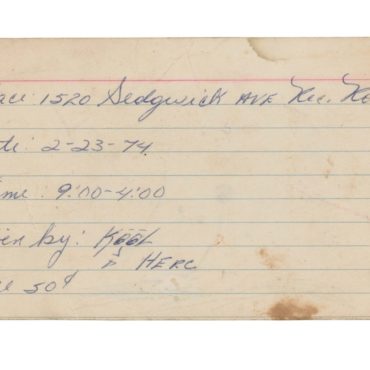 ace: 1520 Sedgwick AVE Rec. R
te: 2-23-74
ime: 9:00-4:00
en by: Kool
HERC
ce 50¢